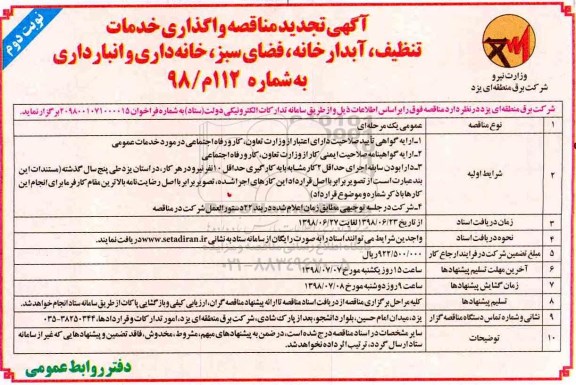 نوبت دوم
آگهی تجدید مناقصه واگذاری خدمات
تنظیف، آبدارخانه، فضای سبز، خانه‌داری و انبارداری
به شماره ۱۱۲م/۹۸
وزارت نیرو
شرکت برق منطقه‌ای یزد
شرکت برق منطقه‌ای یزد در نظر دارد مناقصه فوق را بر اساس اطلاعات ذیل و از طریق سامانه تدارکات الکترونیکی دولت (ستاد) به شماره فراخوان ۲۰۹۸۰۰۱۰۷۱۰۰۰۰۱۵ برگزار نماید.
۱ نوع مناقصه عمومی یک مرحله‌ای
۲ شرایط اولیه
۱-ارایه گواهی تأیید صلاحیت دارای اعتبار از وزارت تعاون، کار و رفاه اجتماعی در مورد خدمات عمومی
۲-ارایه گواهینامه صلاحیت ایمنی کار از وزارت تعاون، کار و رفاه اجتماعی
۳-دارا بودن سابقه اجرای حداقل ۲ کار مشابه با به کارگیری حداقل ۱۰ نفر نیرو در هر کار، در استان یزد طی پنج سال گذشته (مستندات این
بند عبارت است از تصویر برابر با اصل قرارداد این کارهای اجرا شده، تصویر برابر با اصل رضایت نامه بالاترین مقام کارفرما برای انجام این
کارها با ذکر شماره و موضوع قرارداد)
۴-شرکت در جلسه توجیهی مطابق زمان اعلام شده در بند ۲۲ دستورالعمل شرکت در مناقصه
۳ زمان دریافت اسناد از تاریخ ۱۳۹۸/۰۶/۲۳ لغایت ۱۳۹۸/۰۶/۲۷
۴ نحوه دریافت اسناد واجدین شرایط می توانند اسناد را به صورت رایگان از سامانه ستاد به نشانی www.setadiran.ir دریافت نمایند.
۵ مبلغ تضمین شرکت در فرایند ارجاع کار ۹۲۲/۵۰۰/۰۰۰ ریال
۶ آخرین مهلت تسلیم پیشنهادها ساعت ۱۵ روز یکشنبه مورخ ۱۳۹۸/۰۷/۰۷
۷ زمان گشایش پیشنهادها ساعت ۹ روز دوشنبه مورخ ۱۳۹۸/۰۷/۰۸
۸ تسلیم پیشنهادها کلیه مراحل برگزاری مناقصه از دریافت اسناد مناقصه تا ارائه پیشنهاد مناقصه گران، ارزیابی کیفی و بازگشایی پاکات از طریق سامانه ستاد انجام خواهد شد.
۹ نشانی و شماره تماس دستگاه مناقصه گزار یزد، میدان امام حسین، بلوار دانشجو، بعد از پارک شادی، شرکت برق منطقه‌ای یزد، امور تدارکات و قراردادها، ۳۸۲۵۰۳۴۴-۰۳۵
۱۰ توضیحات سایر مشخصات در اسناد مناقصه درج شده است، در ضمن به پیشنهادهای مبهم، مشروط، مخدوش، فاقد تضمین و پیشنهادهایی که غیر از سامانه
ستاد ارسال گردد، ترتیب اثر داده نخواهد شد.
دفتر روابط عمومی